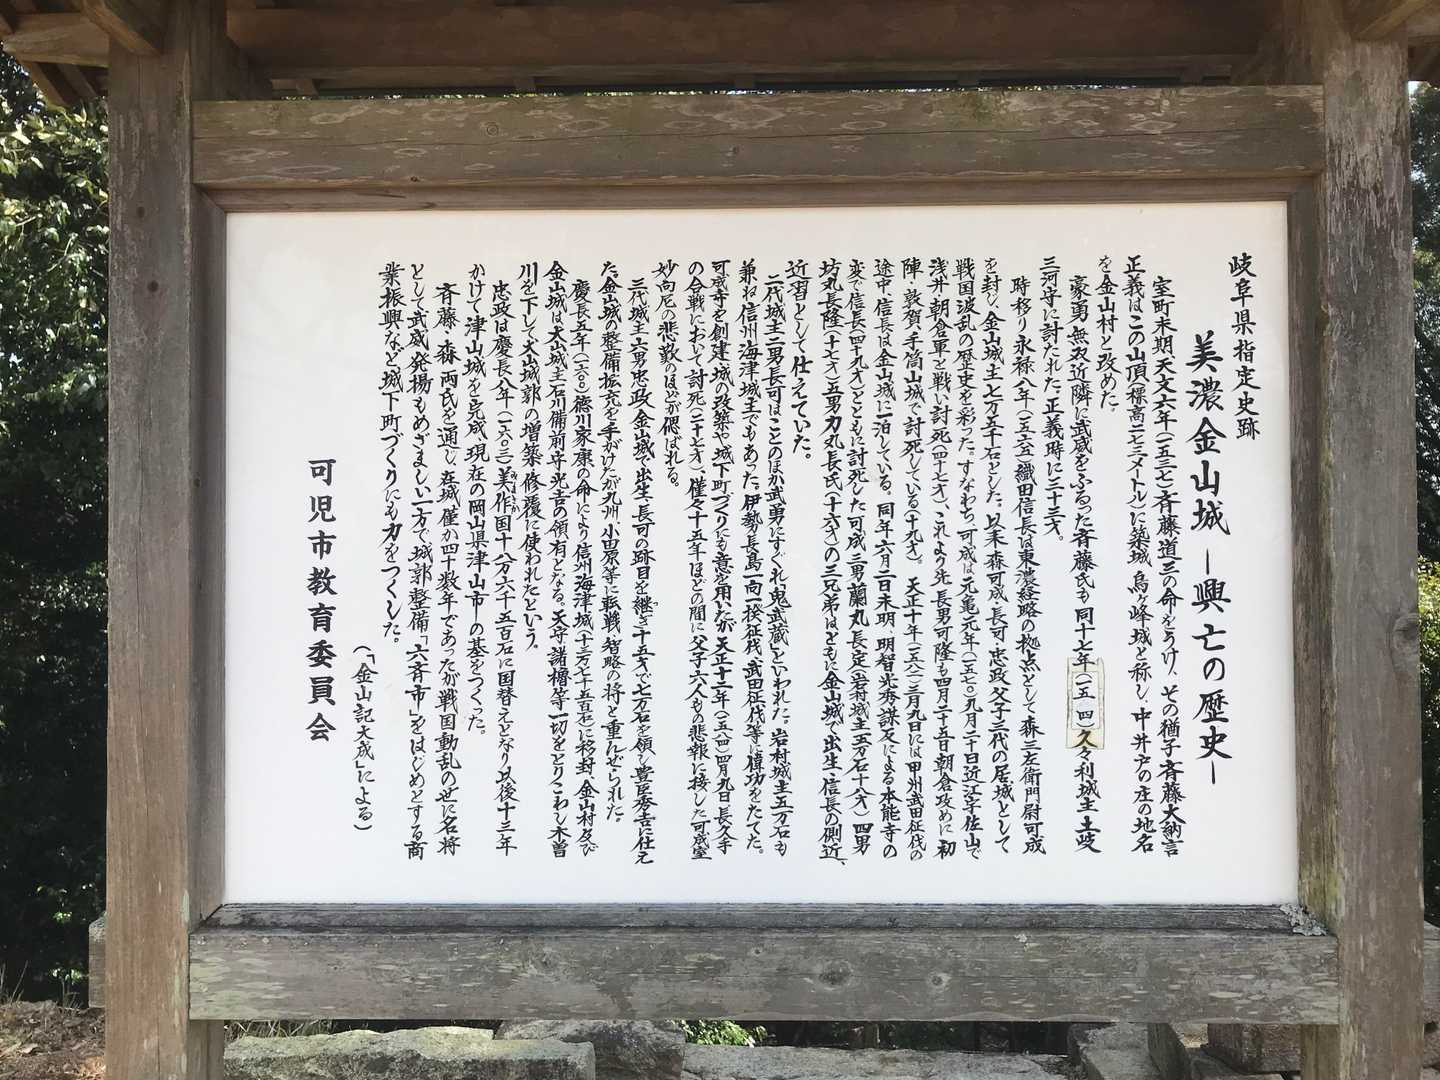 岐阜県指定史跡
美濃金山城 ―興亡の歴史―
室町末期、天文六年(一五三七)斉藤道三の命をうけ、その猶子・斉藤大納言
正義はこの山頂(標高二七三メートル)に築城、烏ヶ峰城と称し、中井戸の庄の地名
を金山村と改めた。
豪勇無双近隣に武威をふるった斉藤氏も同十七年(一五四)久々利城主土岐
三河守に討たれた。正義時に三十三才。
時移り永禄八年(一五六五)織田信長は東濃経略の拠点として森三左衛門尉可成
を封じ、金山城主七万五千石とした。以来森可成・長可・忠政父子三代の居城として
戦国波乱の歴史を彩った。すなわち、可成は元亀元年(一五七〇)九月二十日近江宇佐山で
浅井・朝倉軍と戦い討死(四十七才)、これより先長男可隆も四月二十五日朝倉攻めに初
陣・敦賀手筒山城で討死している(十九才)。天正十年(一五八二)三月九日には甲州武田征伐の
途中、信長は金山城に一泊している。同年六月二日未明、明智光秀謀反による本能寺の
変で信長(四十九才)とともに討死した可成三男蘭丸長定(岩村城主五万石十八才)四男
坊丸長隆(十七才)五男力丸長氏(十六才)の三兄弟はともに金山城で出生、信長の側近、
近習として仕えていた。
二代城主二男長可はことのほか武勇にすぐれ「鬼武蔵」といわれた。岩村城主五万石も
兼ね信州海津城主でもあった。伊勢長島一向一揆征伐、武田征伐等に偉功をたてた。
可成寺を創建、城の改築や城下町づくりにも意を用いたが、天正十二年(一五八四)四月九日長久手
の合戦において討死(二十七才)、僅々十五年ほどの間に父子六人もの悲報に接した可成室
妙向尼の悲歎のほどが偲ばれる。
三代城主六男忠政、金山城に出生、長可の跡目を継ぎ十五才で七万石を領し豊臣秀吉に仕え
た。金山城の整備拡充を手がけたが九州、小田原等に転戦、智略の将と重んぜられた。
慶長五年(一六〇〇)徳川家康の命により信州海津城(十三万七千五百石)に移封、金山村及び
金山城は犬山城主石川備前守光吉の領有となる。天守、諸櫓等一切をとりこわし木曽
川を下して犬山城郭の増築・修覆に使われたという。
忠政は慶長八年(一六〇三)美作国十八万六千五百石に国替えとなり以後十三年
かけて津山城を完成、現在の岡山県津山市の基をつくった。
斉藤・森両氏を通じ、在城僅か四十数年であったが戦国動乱の世に名将
として武威の発揚もめざましい一方で城郭整備「六斉市」をはじめとする商
業振興など城下町づくりにも力をつくした。
(「金山記大成」による)
可児市教育委員会